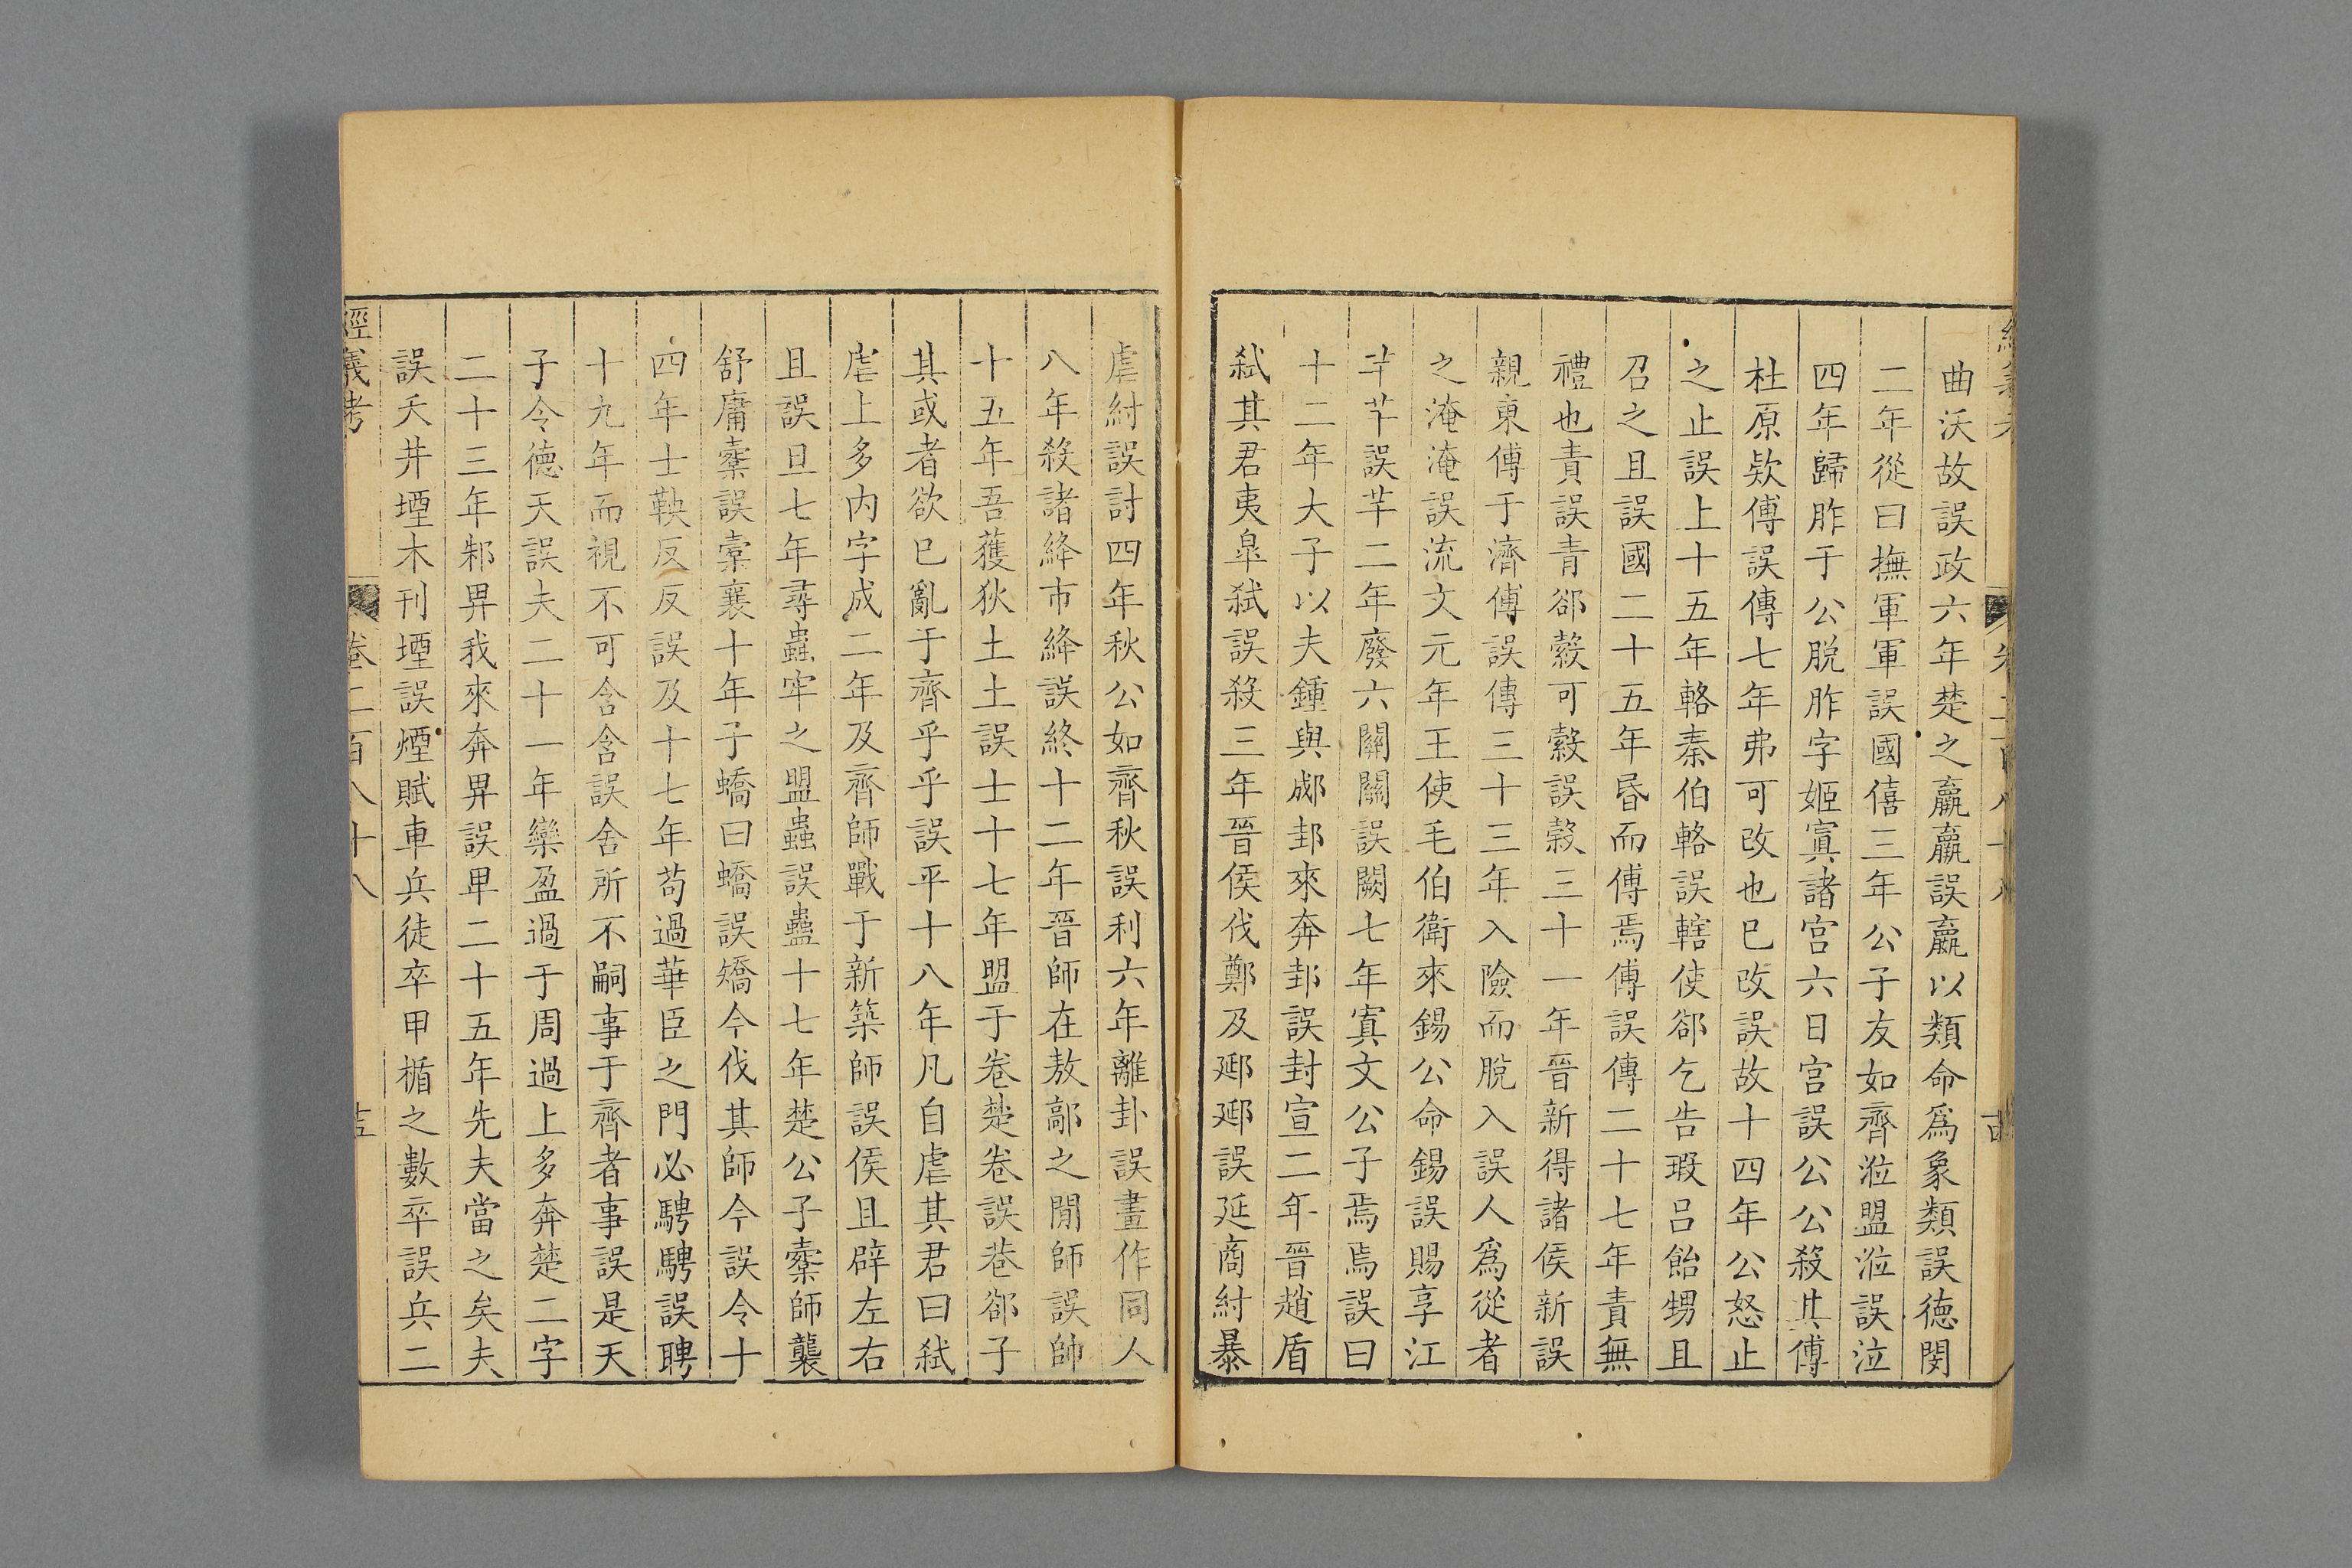 曲沃故誤政六年楚之羸羸誤嬴以類命爲象類誤德閔
二年從曰撫軍軍誤國僖三年公子友如齊涖盟涖誤泣
四年歸胙于公脱胙字姬寘諸宮六日宮誤公公殺其傅
杜原欵傅誤傳七年弗可改也已改誤故十四年公怒止
之止誤上十五年輅秦伯輅誤轄使郤乞告瑕呂飴甥且
召之且誤國二十五年昏而傅焉傅誤傳二十七年責無
禮也責誤青郤縠可縠誤穀三十一年晉新得諸侯新誤
親東傅于濟傅誤傳三十三年入險而脫入誤人爲從者
之淹淹誤流文元年王使毛伯衛來錫公命錫誤賜享江
芊芊誤芉二年廢六關關誤闕七年寘文公子焉焉誤曰
十二年大子以夫鍾與郕邽來奔邽誤封宣二年晉趙盾
弑其君夷臯弑誤殺三年晉侯伐鄭及郔郔誤延商紂暴
虐紂誤討四年秋公如齊秋誤利六年離卦誤畫作同人
八年殺諸絳市絳誤終十二年晉師在敖鄗之閒師誤帥
十五年吾獲狄土土誤士十七年盟于卷楚卷誤巷郤子
其或者欲已亂于齊乎乎誤平十八年凡自虐其君曰弑
虐上多内字成二年及齊師戰于新築師誤侯且辟左右
且誤旦七年尋蟲牢之盟蟲誤蠱十七年楚公子櫜師襲
舒庸櫜誤橐襄十年子蟜曰蟜誤矯今伐其師今誤令十
四年士鞅反反誤及十七年苟過華臣之門必騁騁誤聘
十九年而視不可含含誤舍所不嗣事于齊者事誤是天
子令德天誤夫二十一年欒盈過于周過上多奔楚二字
二十三年邾畀我來奔畀誤甲二十五年先夫當之矣夫
誤夭井堙木刊堙誤煙賦車兵徒卒甲楯之數卒誤兵二
經義考 卷二百八十八 十五